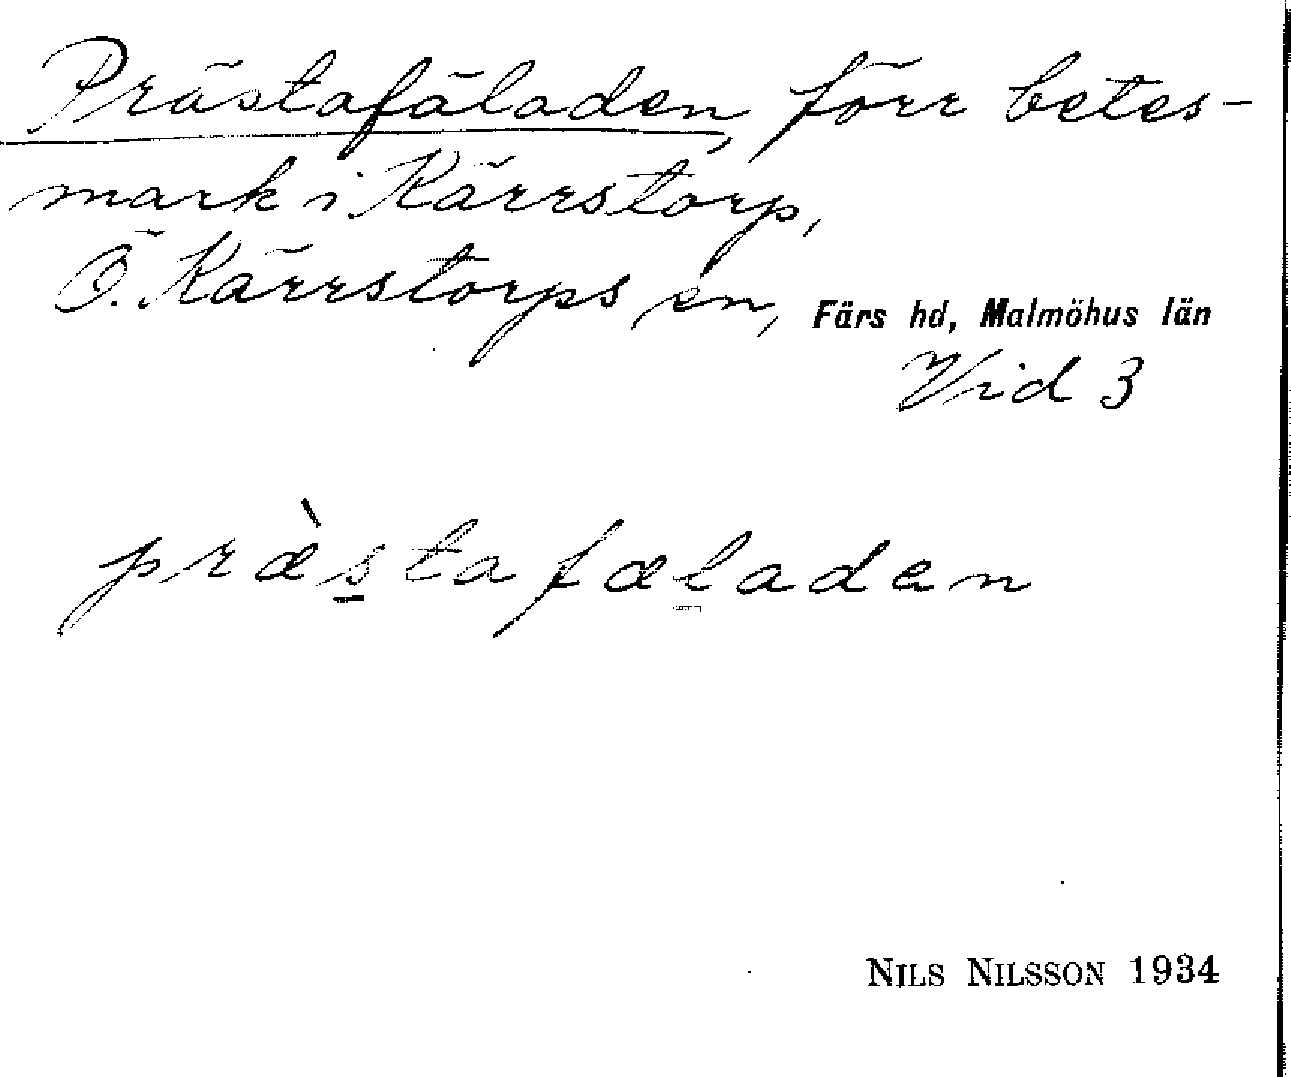 Prästafäladen, förr betes-
mark i Kärrstorp,
Ö. Kärrstorps sn, Färs hd, Malmöhus län
Vid 3
præ̀s̲tafæladen
NILS NILSSON 1934